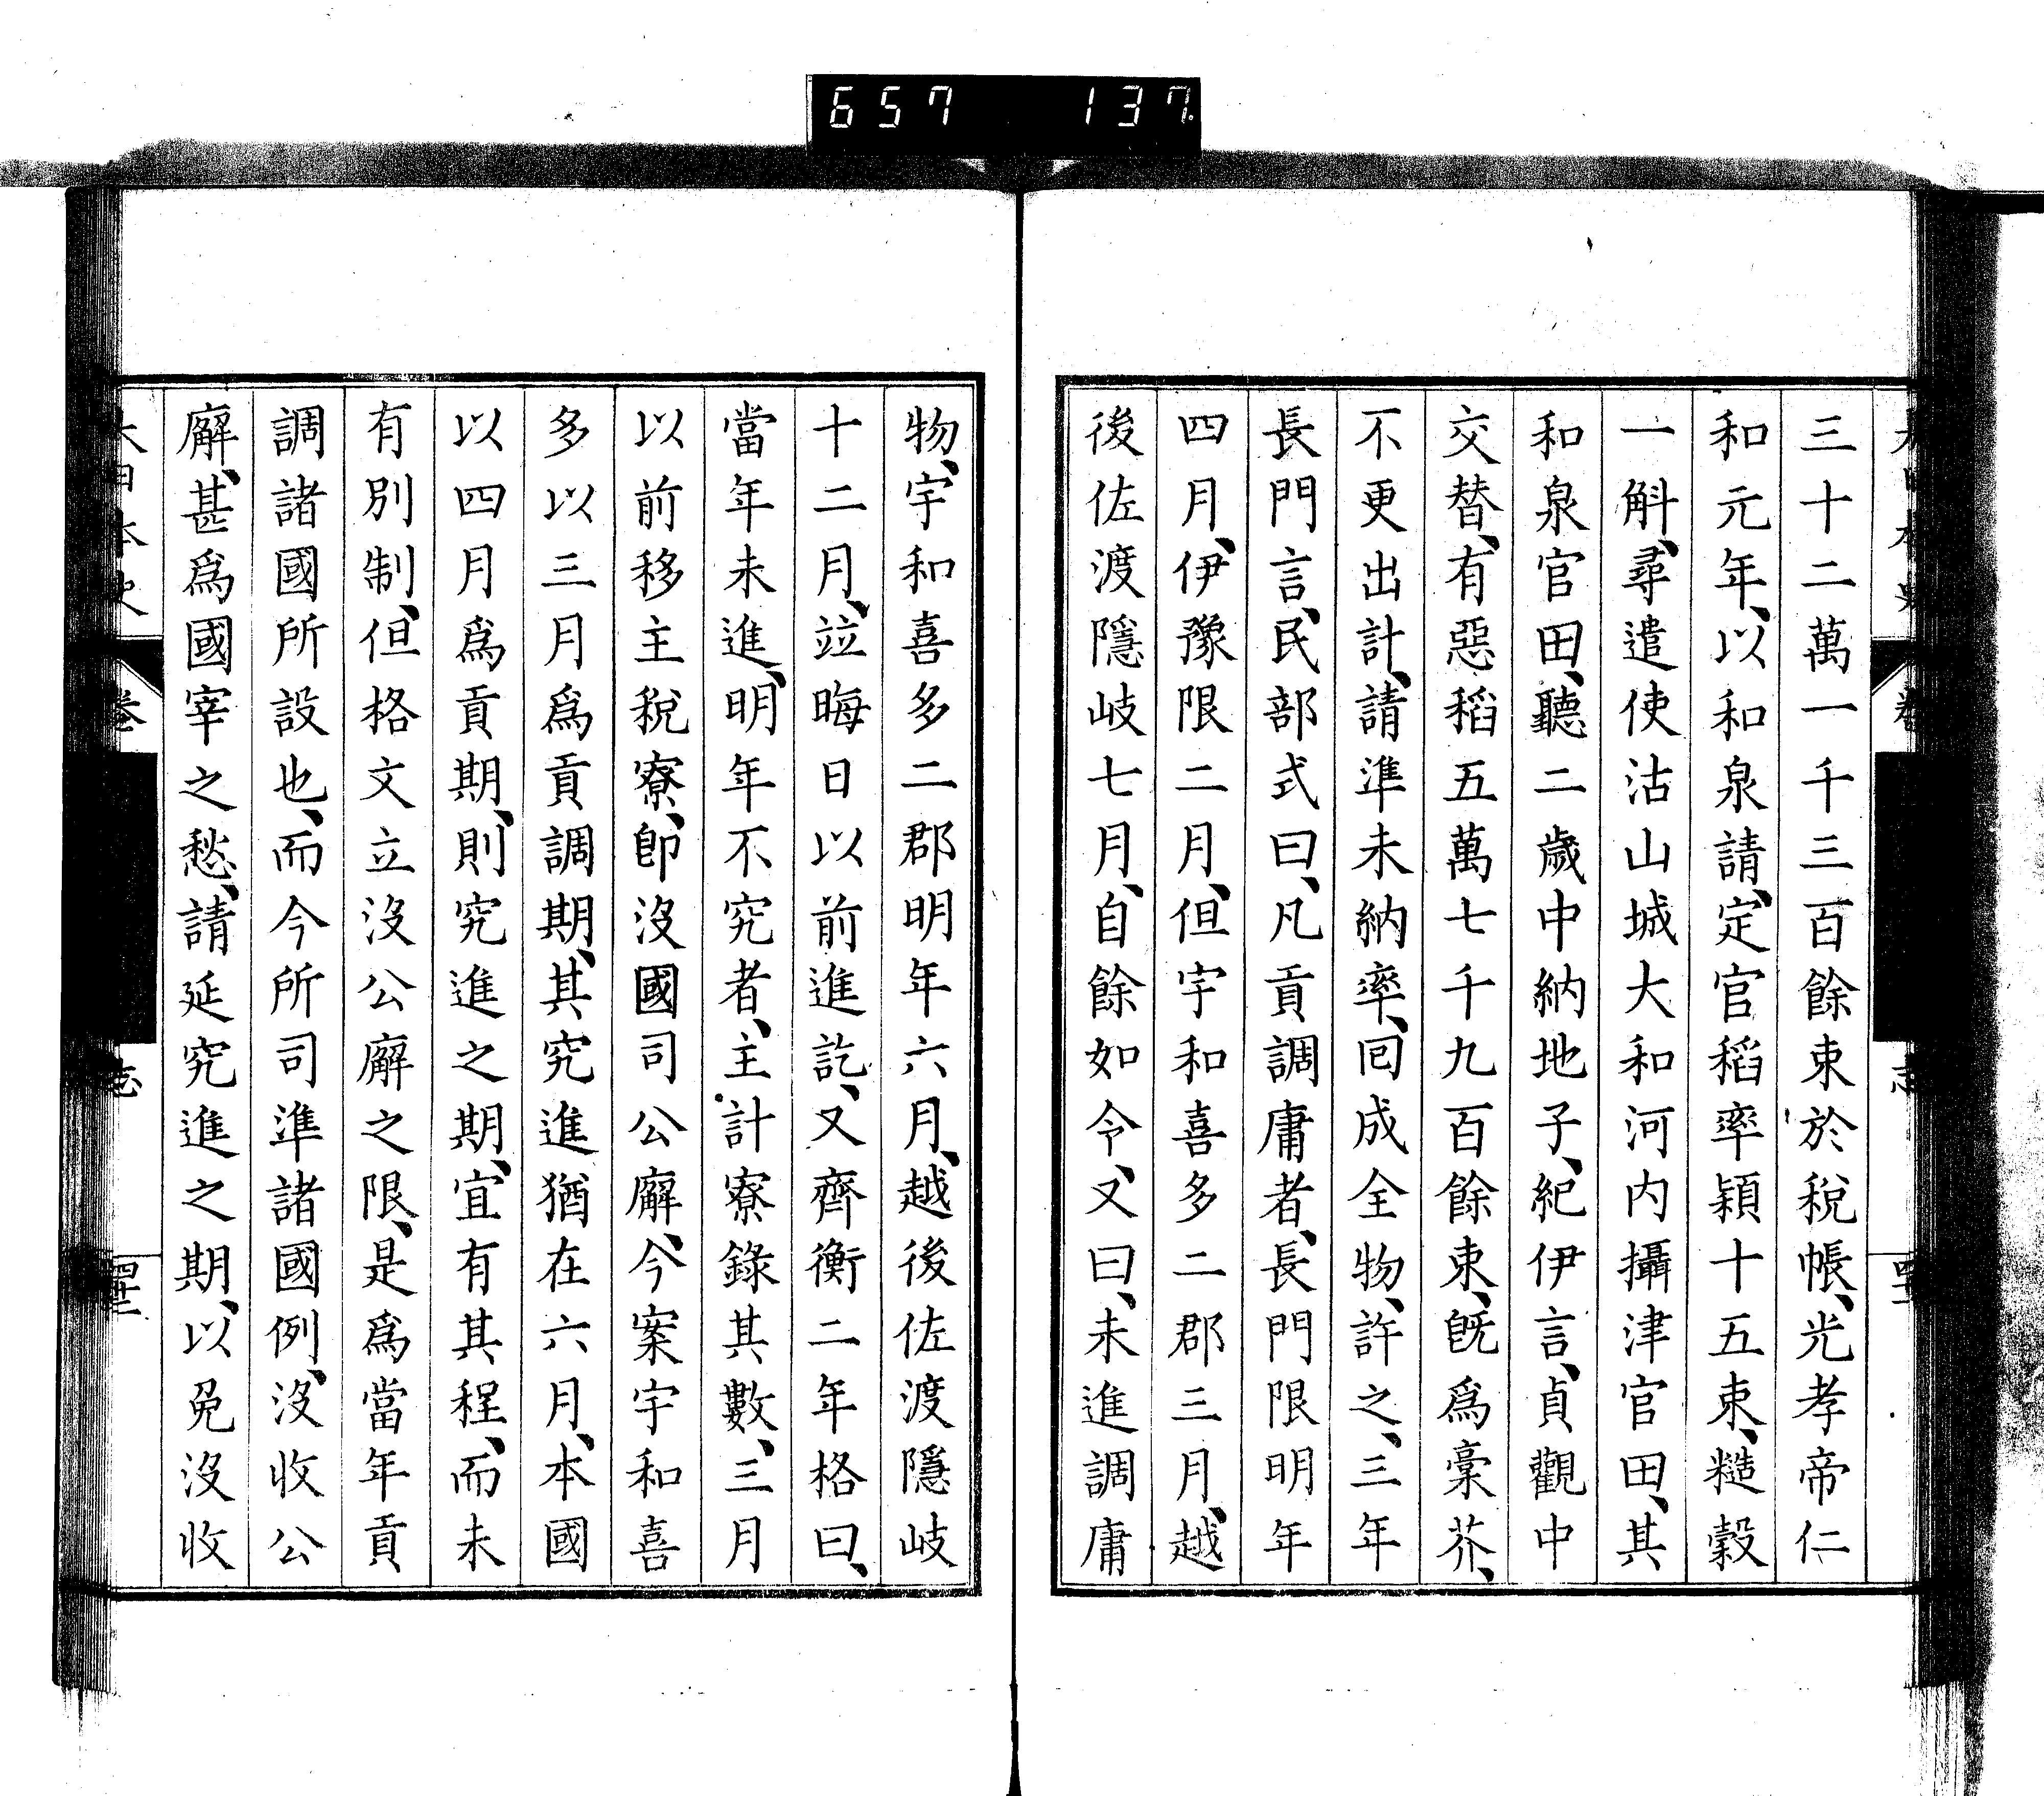 657 137
三十二萬一千三百餘束於稅帳、光孝帝仁
和元年、以和泉請、定官稻率穎十五束、糙穀
一斛、尋遣使沽山城大和河内攝津官田、其
和泉官田、聽二歲中納地子、紀伊言、貞觀中
交替、有惡稻五萬七千九百餘束、旣爲稾芥、
不更出計、請準未納率、囘成全物、許之、三年
長門言、民部式曰、凡貢調庸者、長門限明年
四月、伊豫限二月、但宇和喜多二郡三月、越
後佐渡隱岐七月、自餘如令、又曰、未進調庸
物、宇和喜多二郡明年六月、越後佐渡隱岐
十二月、竝晦日以前進訖、又齊衡二年格曰、
當年未進、明年不究者、主計寮錄其數、三月
以前移主稅寮、卽沒國司公廨、今案宇和喜
多以三月爲貢調期、其究進猶在六月、本國
以四月爲貢期、則究進之期、宜有其程、而未
有別制、但格文立沒公廨之限、是爲當年貢
調諸國所設也、而今所司準諸國例、沒收公
廨、甚爲國宰之愁、請延究進之期、以免沒收
大日本史 卷 志